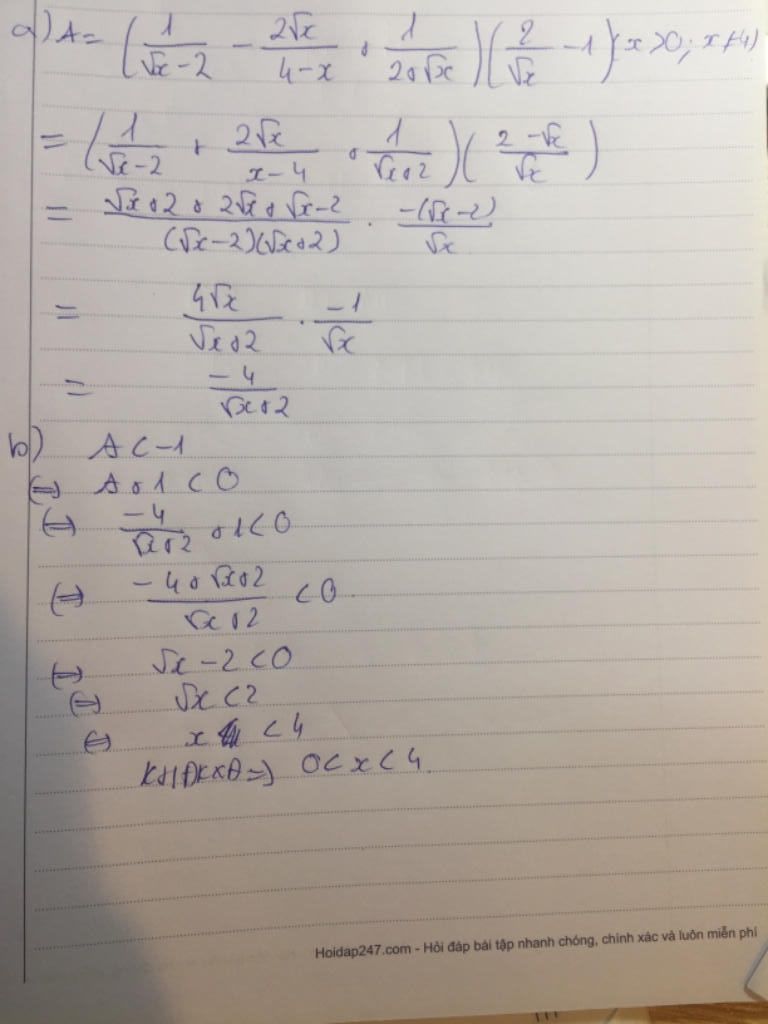 a) A = (1/(√x-2) - 2√x/(4-x) + 1/(2+√x))(2/√x - 1) (x>0; x≠4)
= (1/(√x-2) + 2√x/(x-4) + 1/(√x+2))((2-√x)/√x)
= (√x+2+2√x+√x-2)/((√x-2)(√x+2)) . (-(√x-2))/√x
= 4√x/(√x+2) . -1/√x
= -4/(√x+2)
b) A < -1
⇔ A + 1 < 0
⇔ -4/(√x+2) + 1 < 0
⇔ (-4+√x+2)/(√x+2) < 0
⇔ √x - 2 < 0
⇔ √x < 2
⇔ x < 4
KH ĐKXĐ ⇒ 0 < x < 4
Hoidap247.com - Hỏi đáp bài tập nhanh chóng, chính xác và luôn miễn phí